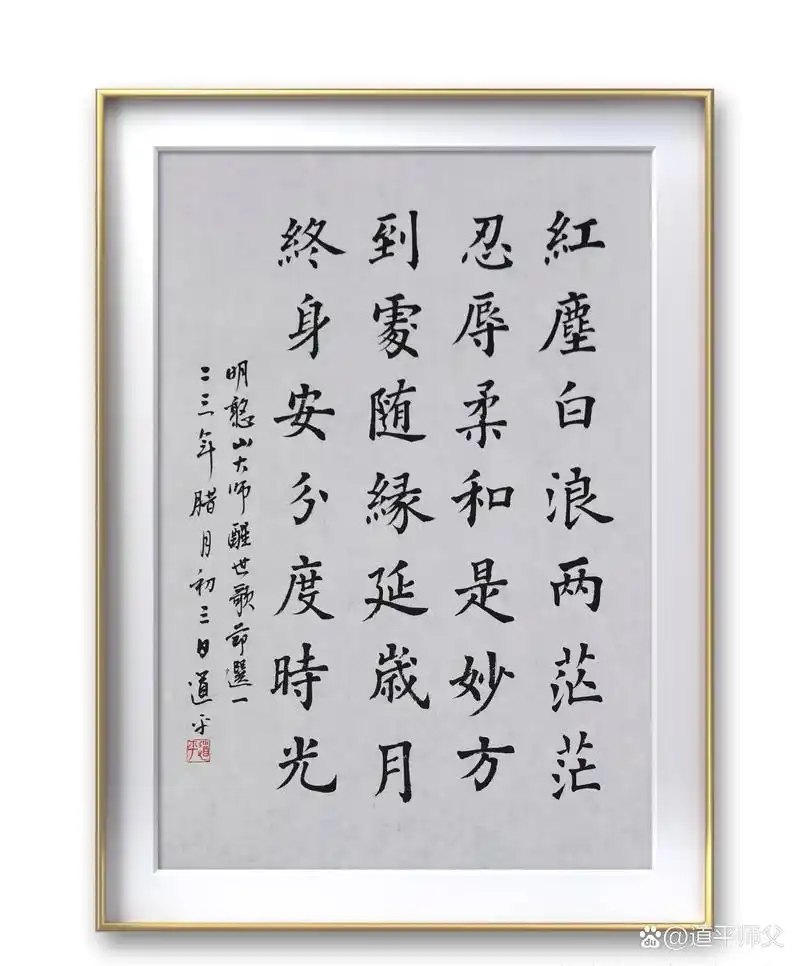 紅塵白浪两茫茫
忍辱柔和是妙方
到處随緣延歲月
終身安分度時光
明憨山大师醒世歌节選一
二三年腊月初三日道平
道平
@道平师父